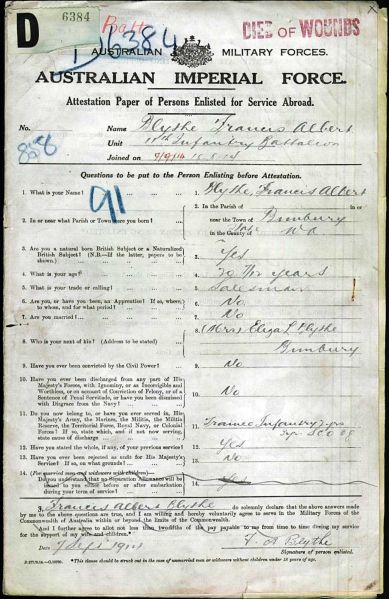 D
6384
Batt
384
DIED OF WOUNDS
AUSTRALIAN MILITARY FORCES.
AUSTRALIAN IMPERIAL FORCE.
Attestation Paper of Persons Enlisted for Service Abroad.
No. Name Blythe Francis Albert
858 Unit 11th Infantry Battalion
Joined on 7/9/14
Questions to be put to the Person Enlisting before Attestation.
91
1. What is your Name? 1. Blythe, Francis Albert
2. In or near what Parish or Town were you born? 2. In the Parish of in or
near the Town of Bunbury
in the County of W.A.
3. Are you a natural born British Subject or a Naturalized
British Subject? (N.B.—If the latter, papers to be
shown). 3. Yes
4. What is your age? 4. years
5. What is your trade or calling? 5. Salesman
6. Are you, or have you been, an Apprentice? If so, where,
to whom, and for what period? 6. No
7. Are you married? 7. No
8. Who is your next of kin? (Address to be stated) 8. (Mrs) Eliza Blythe
Bunbury
9. Have you ever been convicted by the Civil Power? 9. No
10. Have you ever been discharged from any part of His
Majesty's Forces, with Ignominy, or as Incorrigible and
Worthless, or on account of Conviction of Felony, or of a
Sentence of Penal Servitude, or have you been dismissed
with Disgrace from the Navy? 10. No
11. Do you now belong to, or have you ever served in, His
Majesty's Army, the Marines, the Militia, the Militia
Reserve, the Territorial Force, Royal Navy, or Colonial
Forces? If so, state which, and if not now serving,
state cause of discharge 11. Infantry
12. Have you stated the whole, if any, of your previous service? 12. Yes
13. Have you ever been rejected as unfit for His Majesty's
Service? If so, on what grounds? 13. No
14. (For married men and widowers with children)—
Do you understand that no Separation Allowance will be
issued to you either before or after embarkation
during your term of service? 14.
I, Francis Albert Blythe do solemnly declare that the above answers made
by me to the above questions are true, and I am willing and hereby voluntarily agree to serve in the Military Forces of the
Commonwealth of Australia within or beyond the limits of the Commonwealth.
And I further agree to allot not less than two-fifths of the pay payable to me from time to time during my service
for the support of my wife and children.
Date 7 Sept 1914 F. A Blythe
Signature of person enlisted.
*This clause should be struck out in the case of unmarried men or widowers without children under 18 years of age.